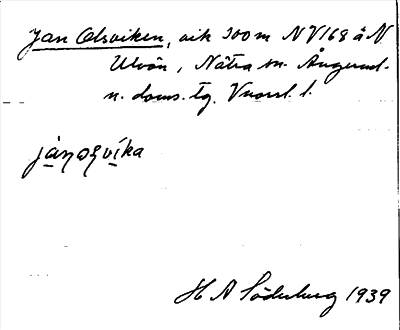 Jan Olsviken, vik 300 m NV168 å N.
Ulvön, Nätra sn. Ångerml.
n. doms. tg. Vnorrl. l.
jánọʂvíka
H A Söderberg 1939